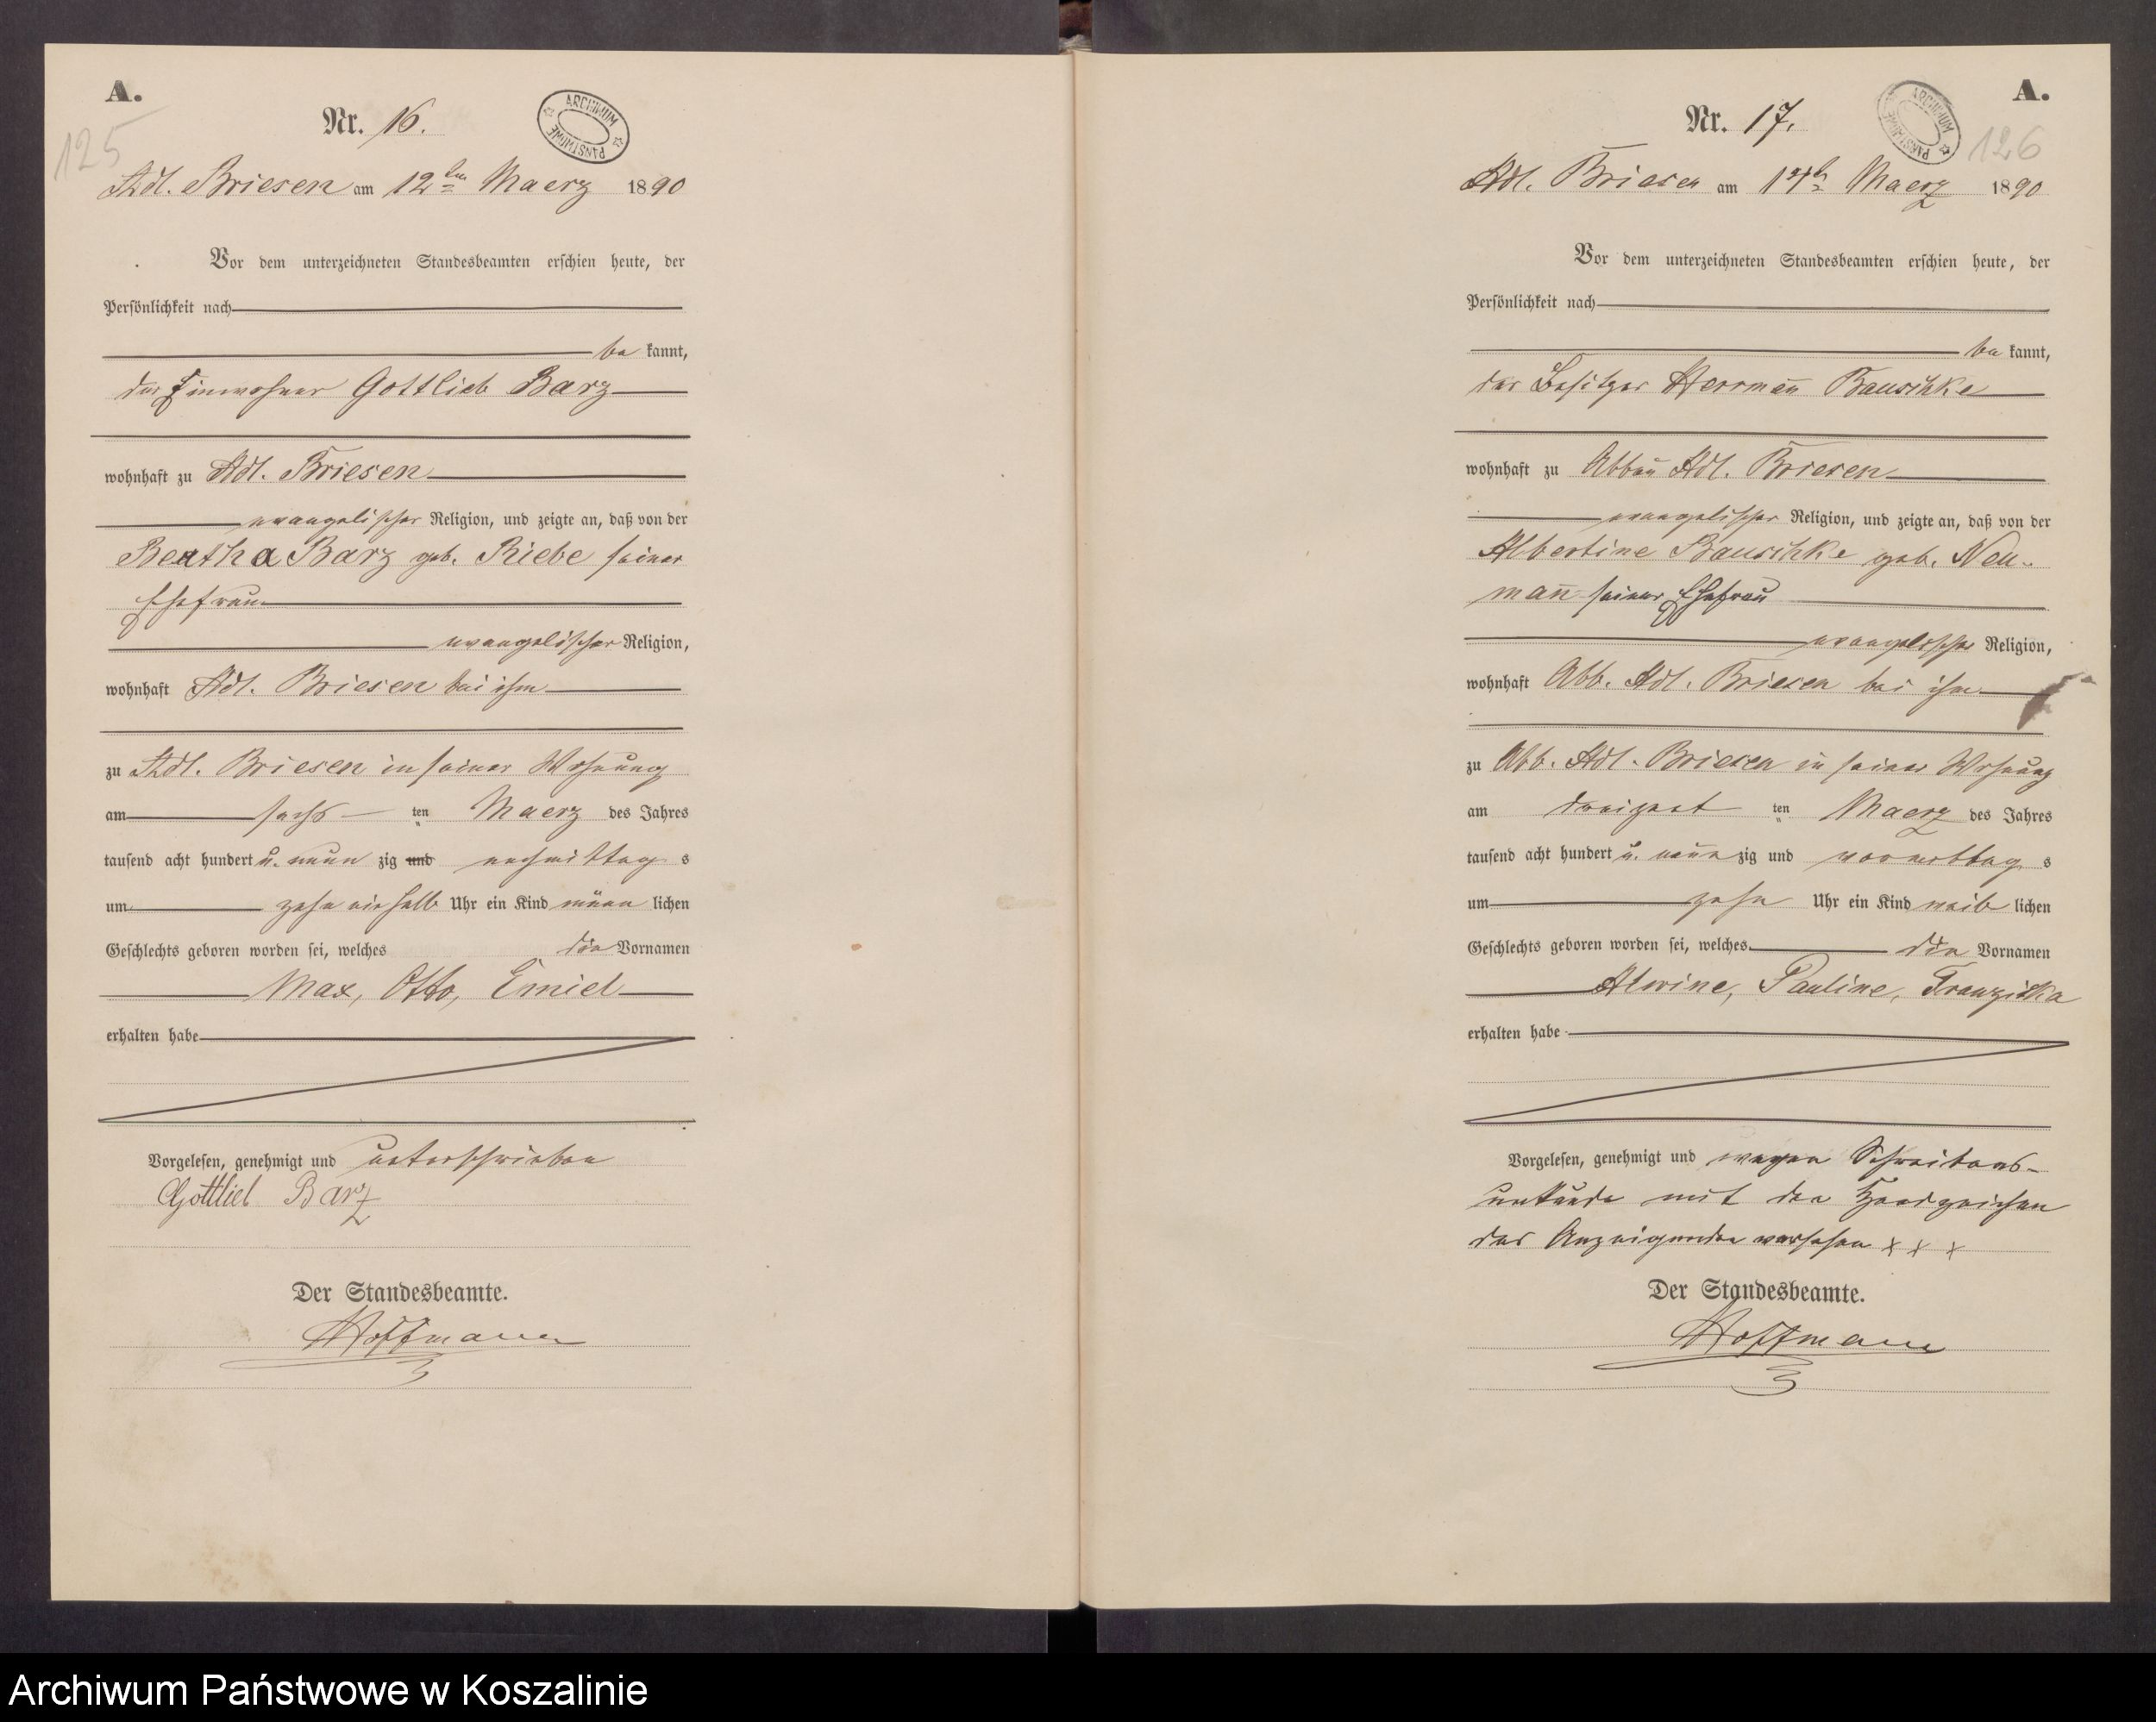 A.
125
Nr. 16.
ARCHIWUM PAŃSTWOWE
Adl. Briesen am 12ten Maerz 1890
Vor dem unterzeichneten Standesbeamten erschien heute, der
Persönlichkeit nach
be kannt,
der Einwohner Gottlieb Barz
wohnhaft zu Adl. Briesen
evangelischer Religion, und zeigte an, daß von der
Beatha Barz geb. Riebe seiner
Ehefrau
evangelischer Religion,
wohnhaft Adl. Briesen bei ihm
zu Adl. Briesen in seiner Wohnung
am sechs ten Maerz des Jahres
tausend acht hundert u. neun zig und nachmittag s
um zehn einhalb Uhr ein Kind männ lichen
Geschlechts geboren worden sei, welches die Vornamen
Max, Otto, Emiel
erhalten habe
Vorgelesen, genehmigt und unterschrieben
Gottlieb Barz
Der Standesbeamte.
Hoffmann
A.
126
Nr. 17.
ARCHIWUM PAŃSTWOWE
Adl. Briesen am Maerz 1890
Vor dem unterzeichneten Standesbeamten erschien heute, der
Persönlichkeit nach
be kannt,
der Besitzer Herrmañ Bauschke
wohnhaft zu Abbau Adl. Briesen
evangelischer Religion, und zeigte an, daß von der
Albertine Bauschke geb. Neu-
mañ seiner Ehefrau
evangelischer Religion,
wohnhaft Abb. Adl. Briesen bei ihm
zu Abb. Adl. Briesen in seiner Wohnung
am dreizent ten Maerz des Jahres
tausend acht hundert u. neun zig und vormittag s
um zehn Uhr ein Kind weib lichen
Geschlechts geboren worden sei, welches die Vornamen
Alwine, Pauline, Franziska
erhalten habe
Vorgelesen, genehmigt und wegen Schreibens-
unkunde mit den Handzeichen
des Anzeigenden versehen x x x
Der Standesbeamte.
Hoffmann
Archiwum Państwowe w Koszalinie